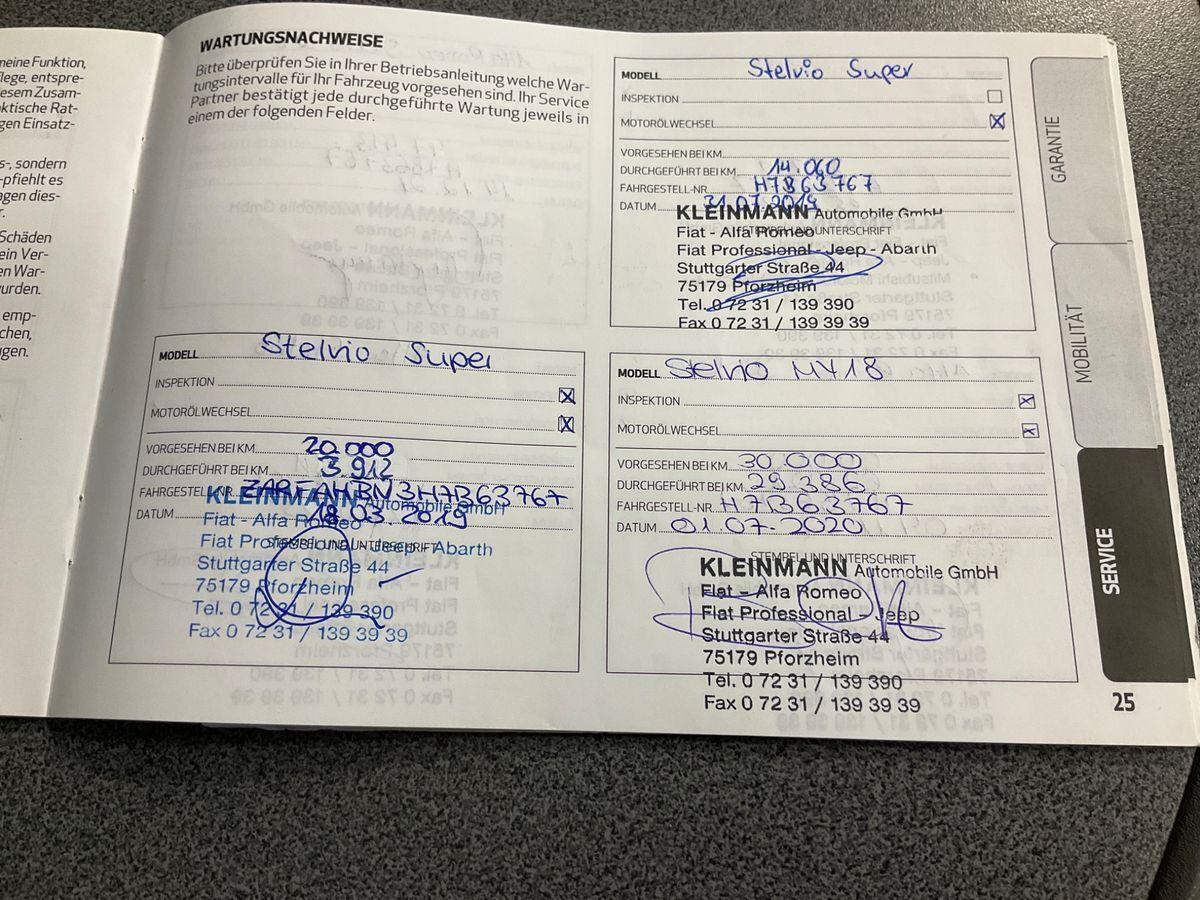 meine Funktion,
lege, entspre-
esem Zusam-
ktische Rat-
gen Einsatz-
s-, sondern
-pfiehlt es
agen dies-
r.
Schäden
ein Ver-
en War-
urden.
emp-
chen,
gen.
WARTUNGSNACHWEISE
Bitte überprüfen Sie in Ihrer Betriebsanleitung welche War-
tungsintervalle für Ihr Fahrzeug vorgesehen sind. Ihr Service
Partner bestätigt jede durchgeführte Wartung jeweils in
einem der folgenden Felder.
MODELL Stelvio Super
INSPEKTION
MOTORÖLWECHSEL
VORGESEHEN BEI KM
DURCHGEFÜHRT BEI KM 14.060
FAHRGESTELL-NR. H7B63767
DATUM 31.07.2019
KLEINMANN Automobile GmbH
Fiat - Alfa Romeo
STEMPEL UND UNTERSCHRIFT
Fiat Professional - Jeep - Abarth
Stuttgarter Straße 44
75179 Pforzheim
Tel. 0 72 31 / 139 390
Fax 0 72 31 / 139 39 39
MODELL Stelvio Super
INSPEKTION
MOTORÖLWECHSEL
VORGESEHEN BEI KM 20.000
DURCHGEFÜHRT BEI KM 3.912
FAHRGESTELL-NR. ZARFAHBN3H7B63767
DATUM 18.03.2019
KLEINMANN Automobile GmbH
Fiat - Alfa Romeo
STEMPEL UND UNTERSCHRIFT
Fiat Professional - Jeep - Abarth
Stuttgarter Straße 44
75179 Pforzheim
Tel. 0 72 31 / 139 390
Fax 0 72 31 / 139 39 39
MODELL Stelvio MY18
INSPEKTION
MOTORÖLWECHSEL
VORGESEHEN BEI KM 30 000
DURCHGEFÜHRT BEI KM 29 386
FAHRGESTELL-NR. H7B63767
DATUM 01.07.2020
STEMPEL UND UNTERSCHRIFT
KLEINMANN Automobile GmbH
Fiat - Alfa Romeo
Fiat Professional - Jeep
Stuttgarter Straße 44
75179 Pforzheim
Tel. 0 72 31 / 139 390
Fax 0 72 31 / 139 39 39
GARANTIE
MOBILITÄT
SERVICE
25